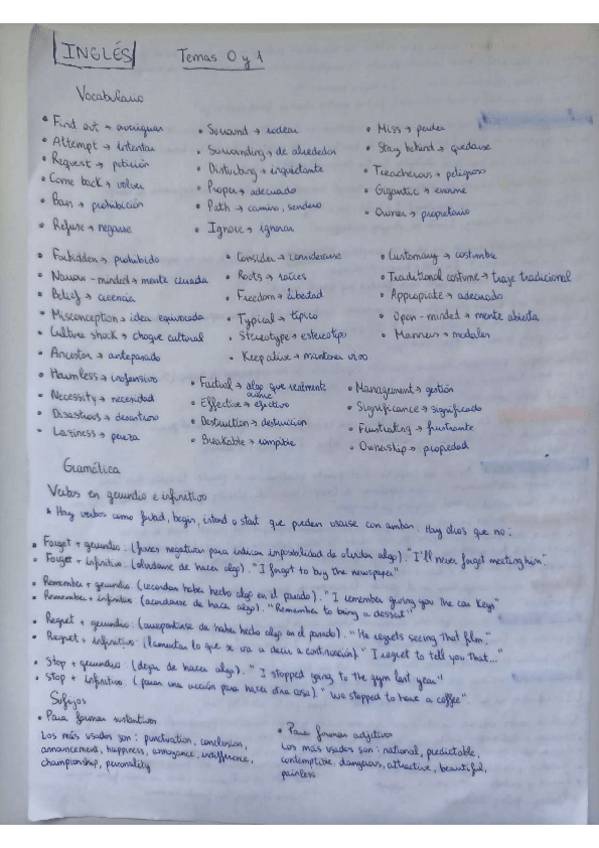 INGLÉS Temas 0 y 1
Vocabulario
• Find out → averiguar
• Attempt → intentar
• Request → petición
• Come back → volver
• Ban → prohibición
• Refuse → negarse
• Surround → rodear
• Surrounding → de alrededor
• Disturbing → inquietante
• Proper → adecuado
• Path → camino, sendero
• Ignore → ignorar
• Miss → perder
• Stay behind → quedarse
• Treacherous → peligroso
• Gigantic → enorme
• Owner → propietario
• Forbidden → prohibido
• Narrow-minded → mente cerrada
• Belief → creencia
• Misconception → idea equivocada
• Culture shock → choque cultural
• Ancestor → antepasado
• Harmless → inofensivo
• Necessity → necesidad
• Disastrous → desastroso
• Laziness → pereza
• Consider → considerarse
• Roots → raíces
• Freedom → libertad
• Typical → típico
• Stereotype → estereotipo
• Keep alive → mantener vivo
• Factual → algo que realmente ocurre
• Effective → efectivo
• Destruction → destrucción
• Breakable → rompible
• Customary → costumbre
• Traditional costume → traje tradicional
• Appropiate → adecuado
• Open-minded → mente abierta
• Manners → modales
• Management → gestión
• Significance → significado
• Frustrating → frustrante
• Ownership → propiedad
Gramática
Verbos en gerundio e infinitivo
* Hay verbos como begin, intend o start que pueden usarse con ambos. Hay otros que no:
• Forget + gerundio: (frases negativas para indicar imposibilidad de olvidar algo). "I'll never forget meeting him".
• Forget + infinitivo: (olvidarse de hacer algo). "I forgot to buy the newspaper"
• Remember + gerundio: (recordar haber hecho algo en el pasado). "I remember giving you the car keys"
• Remember + infinitivo: (acordarse de hacer algo). "Remember to bring a dessert"
• Regret + gerundio: (arrepentirse de haber hecho algo en el pasado). "He regrets seeing that film."
• Regret + infinitivo: (lamentar lo que se va a decir a continuación). "I regret to tell you that..."
• Stop + gerundio: (dejar de hacer algo). "I stopped going to the gym last year"
• Stop + infinitivo: (parar una acción para hacer otra cosa). "We stopped to have a coffee".
Sufijos
• Para formar sustantivos
Los más usados son: punctuation, conclusion,
announcement, happiness, annoyance, indifference,
championship, personality
• Para formar adjetivos
Los más usados son: national, predictable,
dangerous, attractive, beautiful,
painless